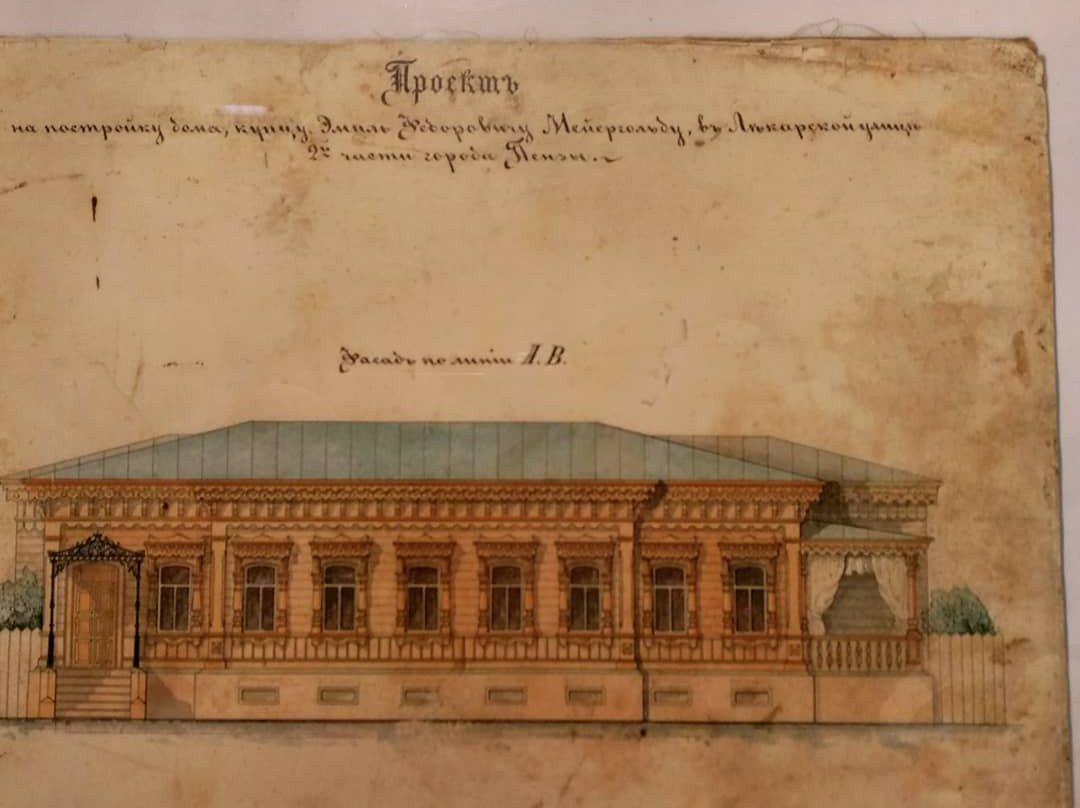 Проектъ
на постройку дома, купцу Эмиль Ѳедоровичу Мейергольду, въ Лѣкарской улицѣ
2й части города Пензы.
Фасадъ по линіи А.В.